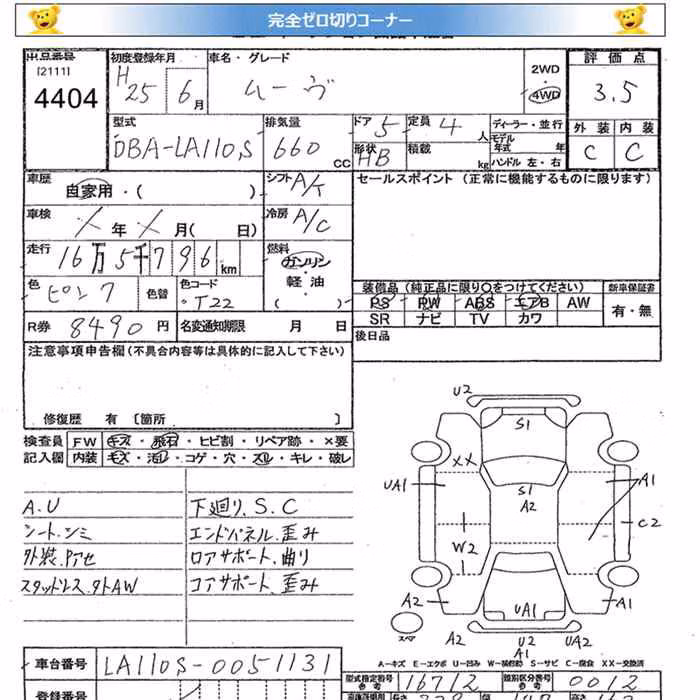 完全ゼロ切りコーナー
出品番号 [2111] 4404
初度登録年月 H25年 6月
車名・グレード ムーヴ
2WD・4WD
評価点 3.5
外装 C 内装 C
型式 DBA-LA110S
排気量 660 CC
ドア 5 定員 4人
形状 HB 積載 kg
ディーラー・並行
モデル年式 年
ハンドル 左・右
車歴 自家用・( )
シフト A/K
セールスポイント (正常に機能するものに限ります)
車検 ╱年╱月( 日)
冷房 A/C
走行 16万5千796km
燃料 ガソリン・軽油 ( )
色 ピンク 色替
色コード T22
装備品 (純正品に限り○をつけてください) 新車保証書
PS PW ABS エアB AW 有・無
SR ナビ TV カワ
R券 8490円
名変通知期限 月 日
後日品
注意事項申告欄 (不具合内容等は具体的に記入して下さい)
修復歴 有 [箇所 ]
検査員記入欄
FW キズ・飛石・ヒビ割・リペア跡・×要
内装 キズ・汚レ・コゲ・穴・スレ・キレ・破レ
A.U
シート.シミ
外装.アセ
スタッドレス.タトAW
下廻り.S.C
エンドパネル.歪み
ロアサポート.曲り
コアサポート.歪み
U2
S1
XX
UA1
A1
S1
A2
W2
C2
A2
UA1
A1
スペア
A2
U2
UA2
A1
A-キズ E-エクボ U-凹み W-補修跡 S-サビ C-腐食 XX-交換済
車台番号 LA110S-0051131
型式指定番号 参考 16712
類別区分番号 参考 0012
登録番号